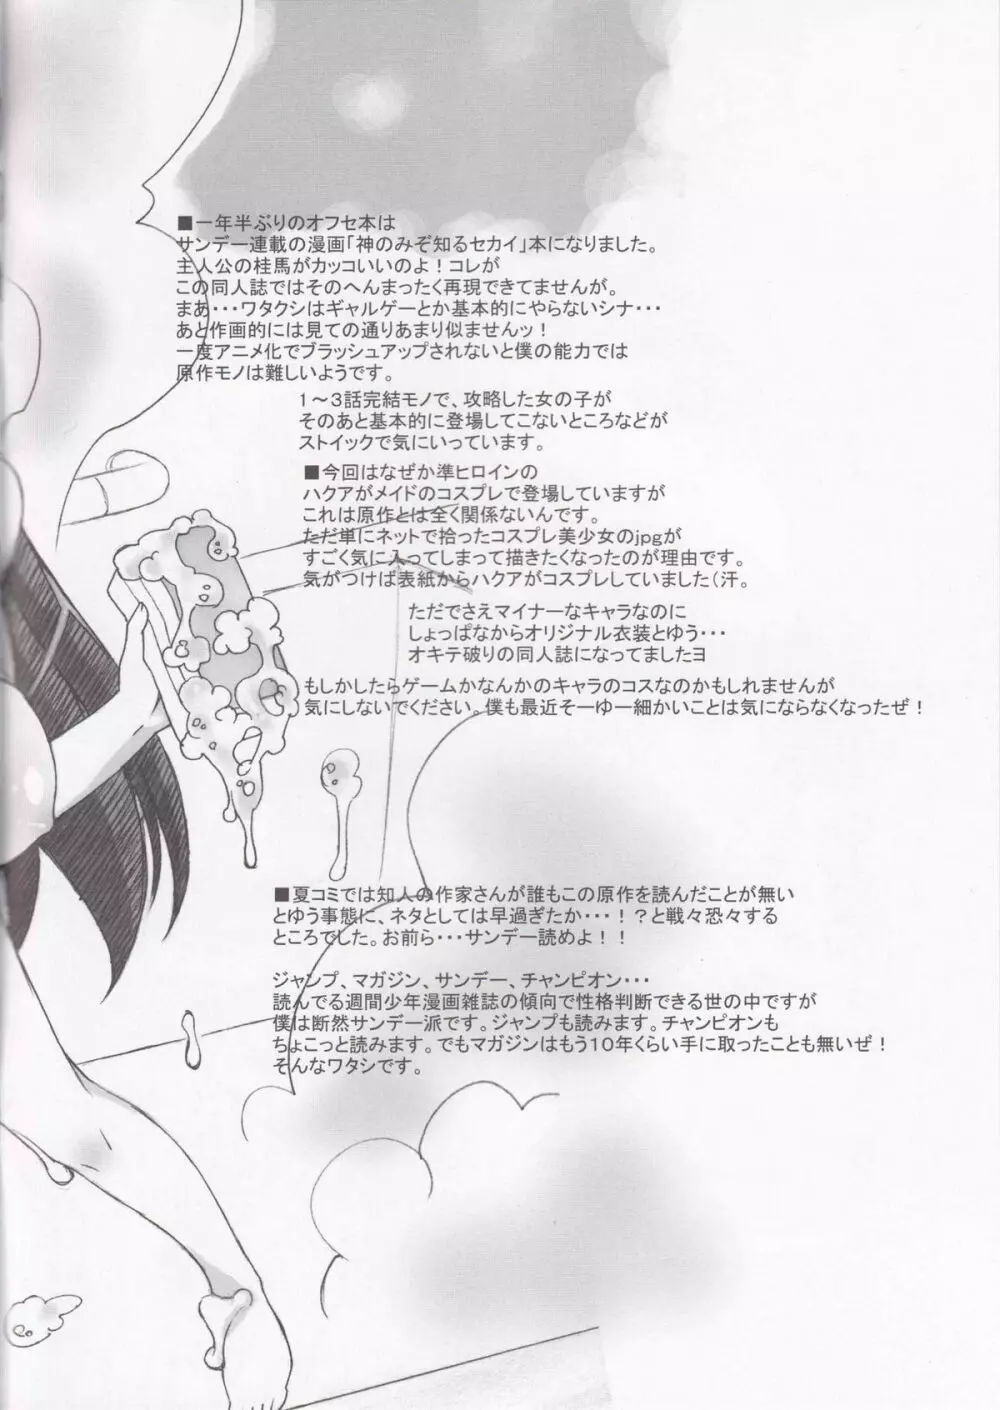 ■一年半ぶりのオフセ本は
サンデー連載の漫画「神のみぞ知るセカイ」本になりました。
主人公の桂馬がカッコいいのよ！コレが
この同人誌ではそのへんまったく再現できてませんが。
まあ・・・ワタクシはギャルゲーとか基本的にやらないシナ・・・
あと作画的には見ての通りあまり似ませんッ！
一度アニメ化でブラッシュアップされないと僕の能力では
原作モノは難しいようです。
１～３話完結モノで、攻略した女の子が
そのあと基本的に登場してこないところなどが
ストイックで気にいっています。
■今回はなぜか準ヒロインの
ハクアがメイドのコスプレで登場していますが
これは原作とは全く関係ないんです。
ただ単にネットで拾ったコスプレ美少女のjpgが
すごく気に入ってしまって描きたくなったのが理由です。
気がつけば表紙からハクアがコスプレしていました（汗。
ただでさえマイナーなキャラなのに
しょっぱなからオリジナル衣装とゆう・・・
オキテ破りの同人誌になってましたヨ
もしかしたらゲームかなんかのキャラのコスなのかもしれませんが
気にしないでください。僕も最近そーゆー細かいことは気にならなくなったぜ！
■夏コミでは知人の作家さんが誰もこの原作を読んだことが無い
とゆう事態に、ネタとしては早過ぎたか・・・！？と戦々恐々する
ところでした。お前ら・・・サンデー読めよ！！
ジャンプ、マガジン、サンデー、チャンピオン・・・
読んでる週間少年漫画雑誌の傾向で性格判断できる世の中ですが
僕は断然サンデー派です。ジャンプも読みます。チャンピオンも
ちょこっと読みます。でもマガジンはもう１０年くらい手に取ったことも無いぜ！
そんなワタシです。